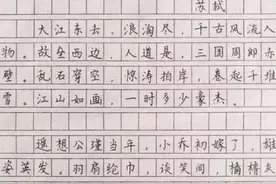 苏轼
大江东去,浪淘尽,千古风流人
物。故垒西边,人道是,三国周郎赤
壁。乱石穿空,惊涛拍岸,卷起千堆
雪。江山如画,一时多少豪杰。
遥想公瑾当年,小乔初嫁了,雄
姿英发。羽扇纶巾,谈笑间,樯橹灰